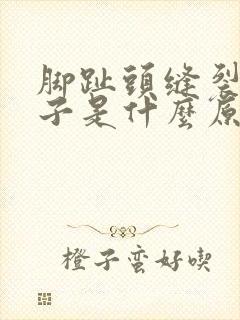 脚趾頭縫裂
子是什麼原
橙子蛮好喫